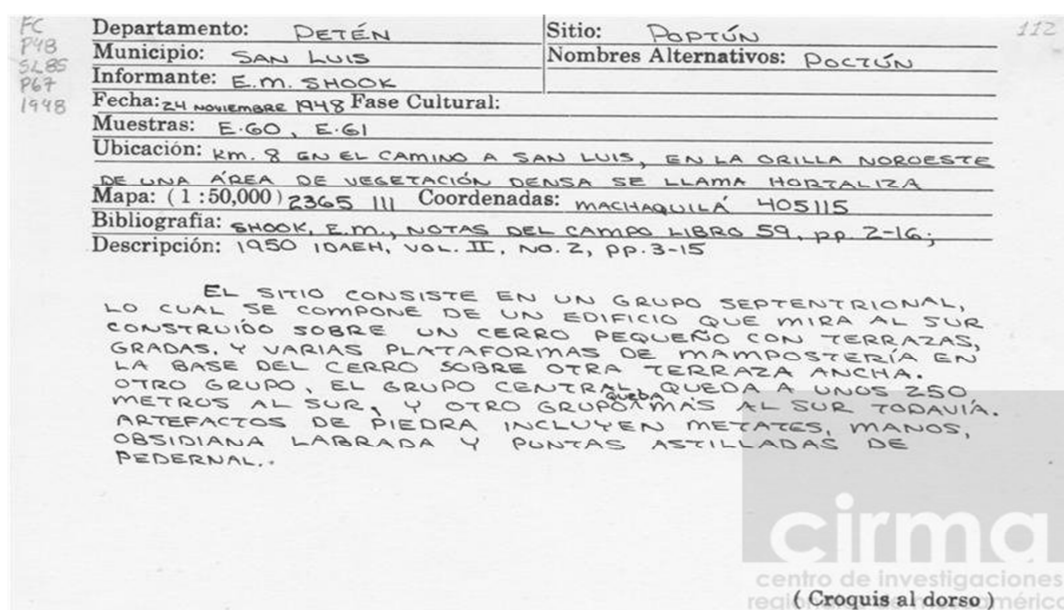 FC
P48
SL85
P67
1948
112
Departamento: PETÉN Sitio: POPTÚN
Municipio: SAN LUIS Nombres Alternativos: POCTÚN
Informante: E.M. SHOOK
Fecha: 24 NOVIEMBRE 1948 Fase Cultural:
Muestras: E.60, E.61
Ubicación: Km. 8 EN EL CAMINO A SAN LUIS, EN LA ORILLA NOROESTE
DE UNA ÁREA DE VEGETACIÓN DENSA SE LLAMA HORTALIZA
Mapa: (1:50,000) 2365 III Coordenadas: MACHAQUILÁ 405115
Bibliografía: SHOOK, E.M., NOTAS DEL CAMPO LIBRO 59, pp. 2-16;
Descripción: 1950 IDAEH, VOL. II, NO. 2, pp. 3-15
EL SITIO CONSISTE EN UN GRUPO SEPTENTRIONAL,
LO CUAL SE COMPONE DE UN EDIFICIO QUE MIRA AL SUR
CONSTRUÍDO SOBRE UN CERRO PEQUEÑO CON TERRAZAS,
GRADAS, Y VARIAS PLATAFORMAS DE MAMPOSTERÍA EN
LA BASE DEL CERRO SOBRE OTRA TERRAZA ANCHA.
OTRO GRUPO, EL GRUPO CENTRAL, QUEDA A UNOS 250
METROS AL SUR, Y OTRO GRUPO QUEDA MÁS AL SUR TODAVÍA.
ARTEFACTOS DE PIEDRA INCLUYEN METATES, MANOS,
OBSIDIANA LABRADA Y PUNTAS ASTILLADAS DE
PEDERNAL.
cirma
centro de investigaciones
(Croquis al dorso)